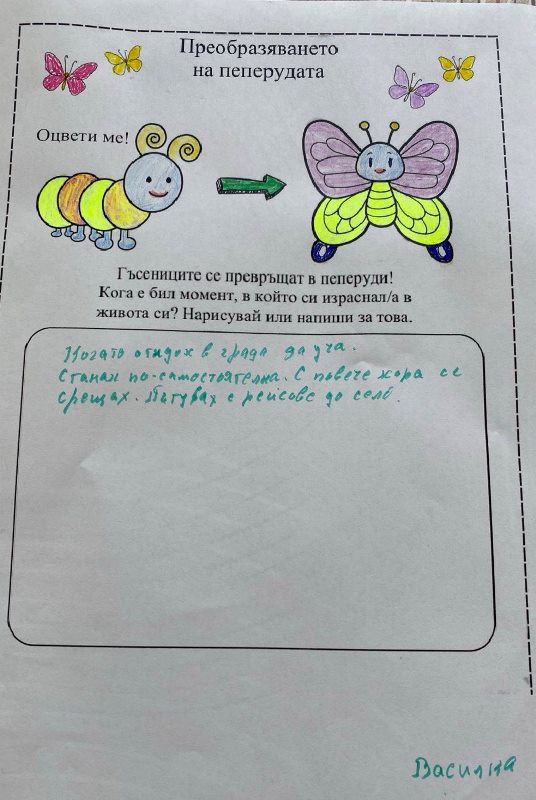 Преобразяването
на пеперудата
Оцвети ме!
Гъсениците се превръщат в пеперуди!
Кога е бил момент, в който си израснал/а в
живота си? Нарисувай или напиши за това.
Когато отидох в града да уча.
Станах по-самостоятелна. С повече хора се
срещах. Пътувах с рейсове до село.
Василка